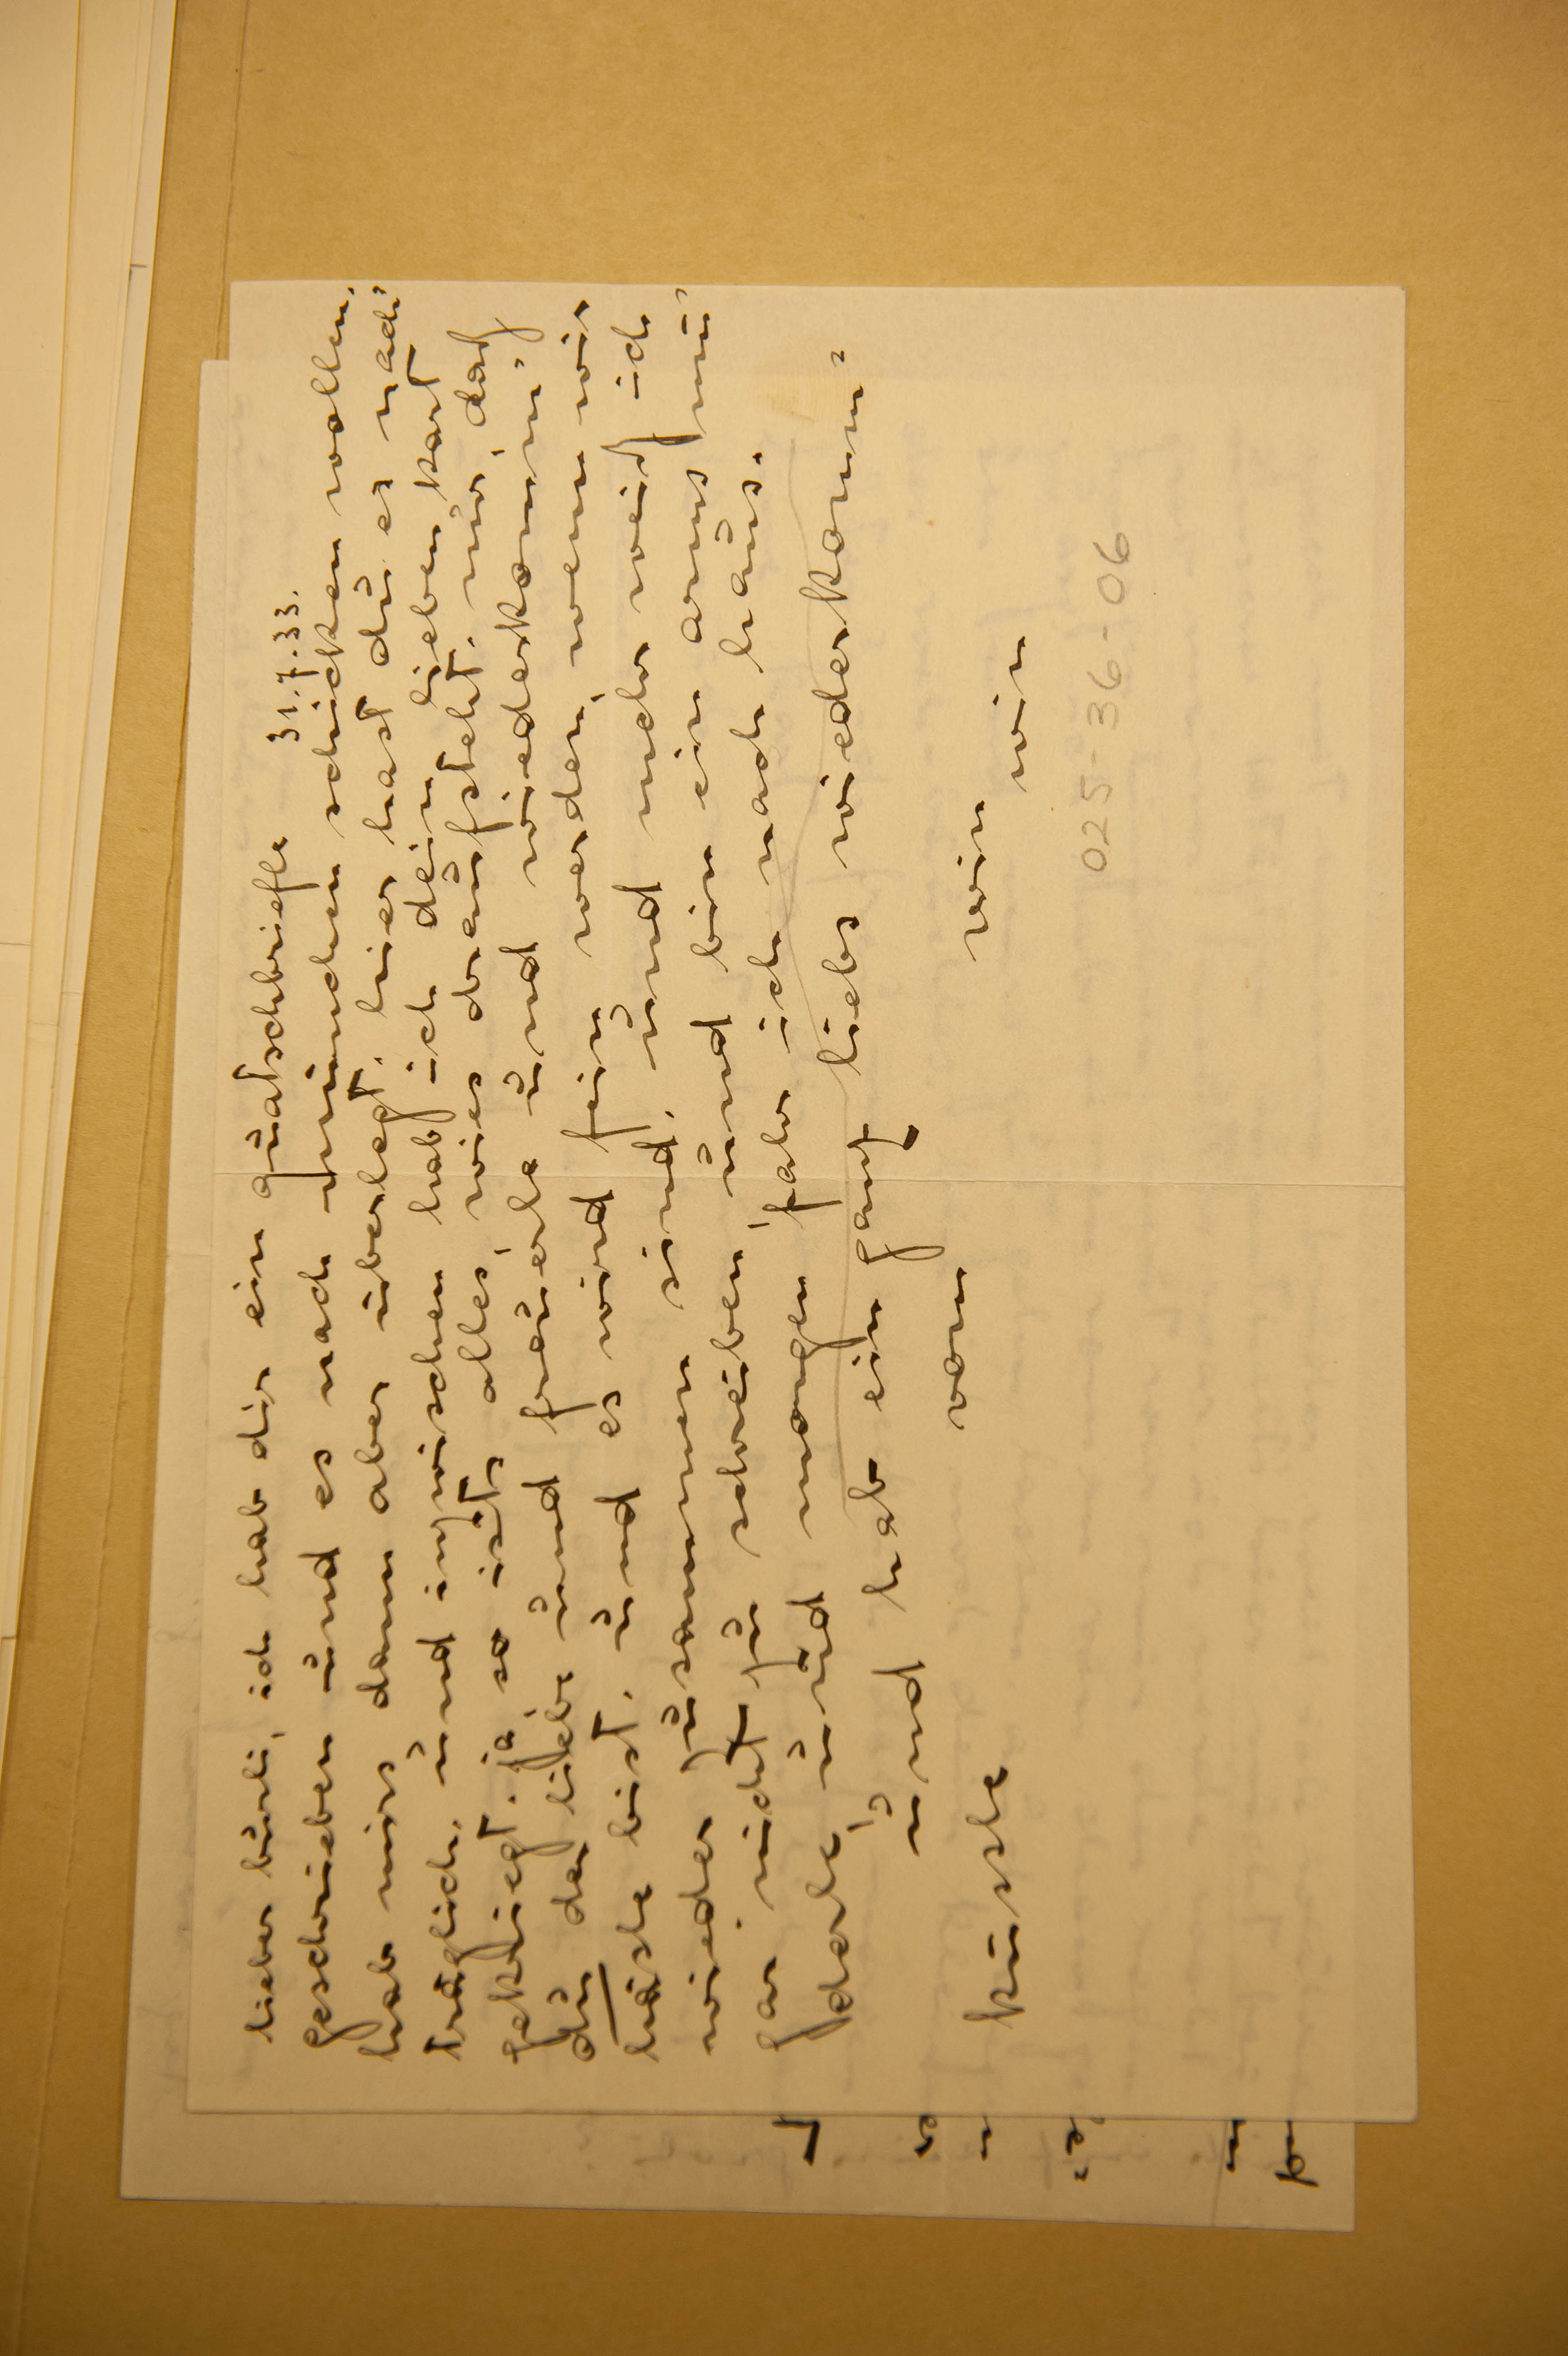 31.7.33.
lieber bürli, ich hab dir ein quatschbriefle
geschrieben und es nach münchen schicken wollen.
hab mirs dann aber überlegt. hier hast du es nach-
träglich. und inzwischen hab ich dein lieben kart
gekriegt. ja, so ists alles, wies draufsteht. nur, daß
du der liebe und freuerle und wiederkomm-
husle bist. und es wird fein werden, wenn wir
wieder zusammen sind. und mehr weiß ich
gar nicht zu schreiben, und bin ein arms mü-
derle und morgen fahr ich nach haus.
und hab ein ganz liebs wiederkomm-
küssle vom
win win
025-36-06